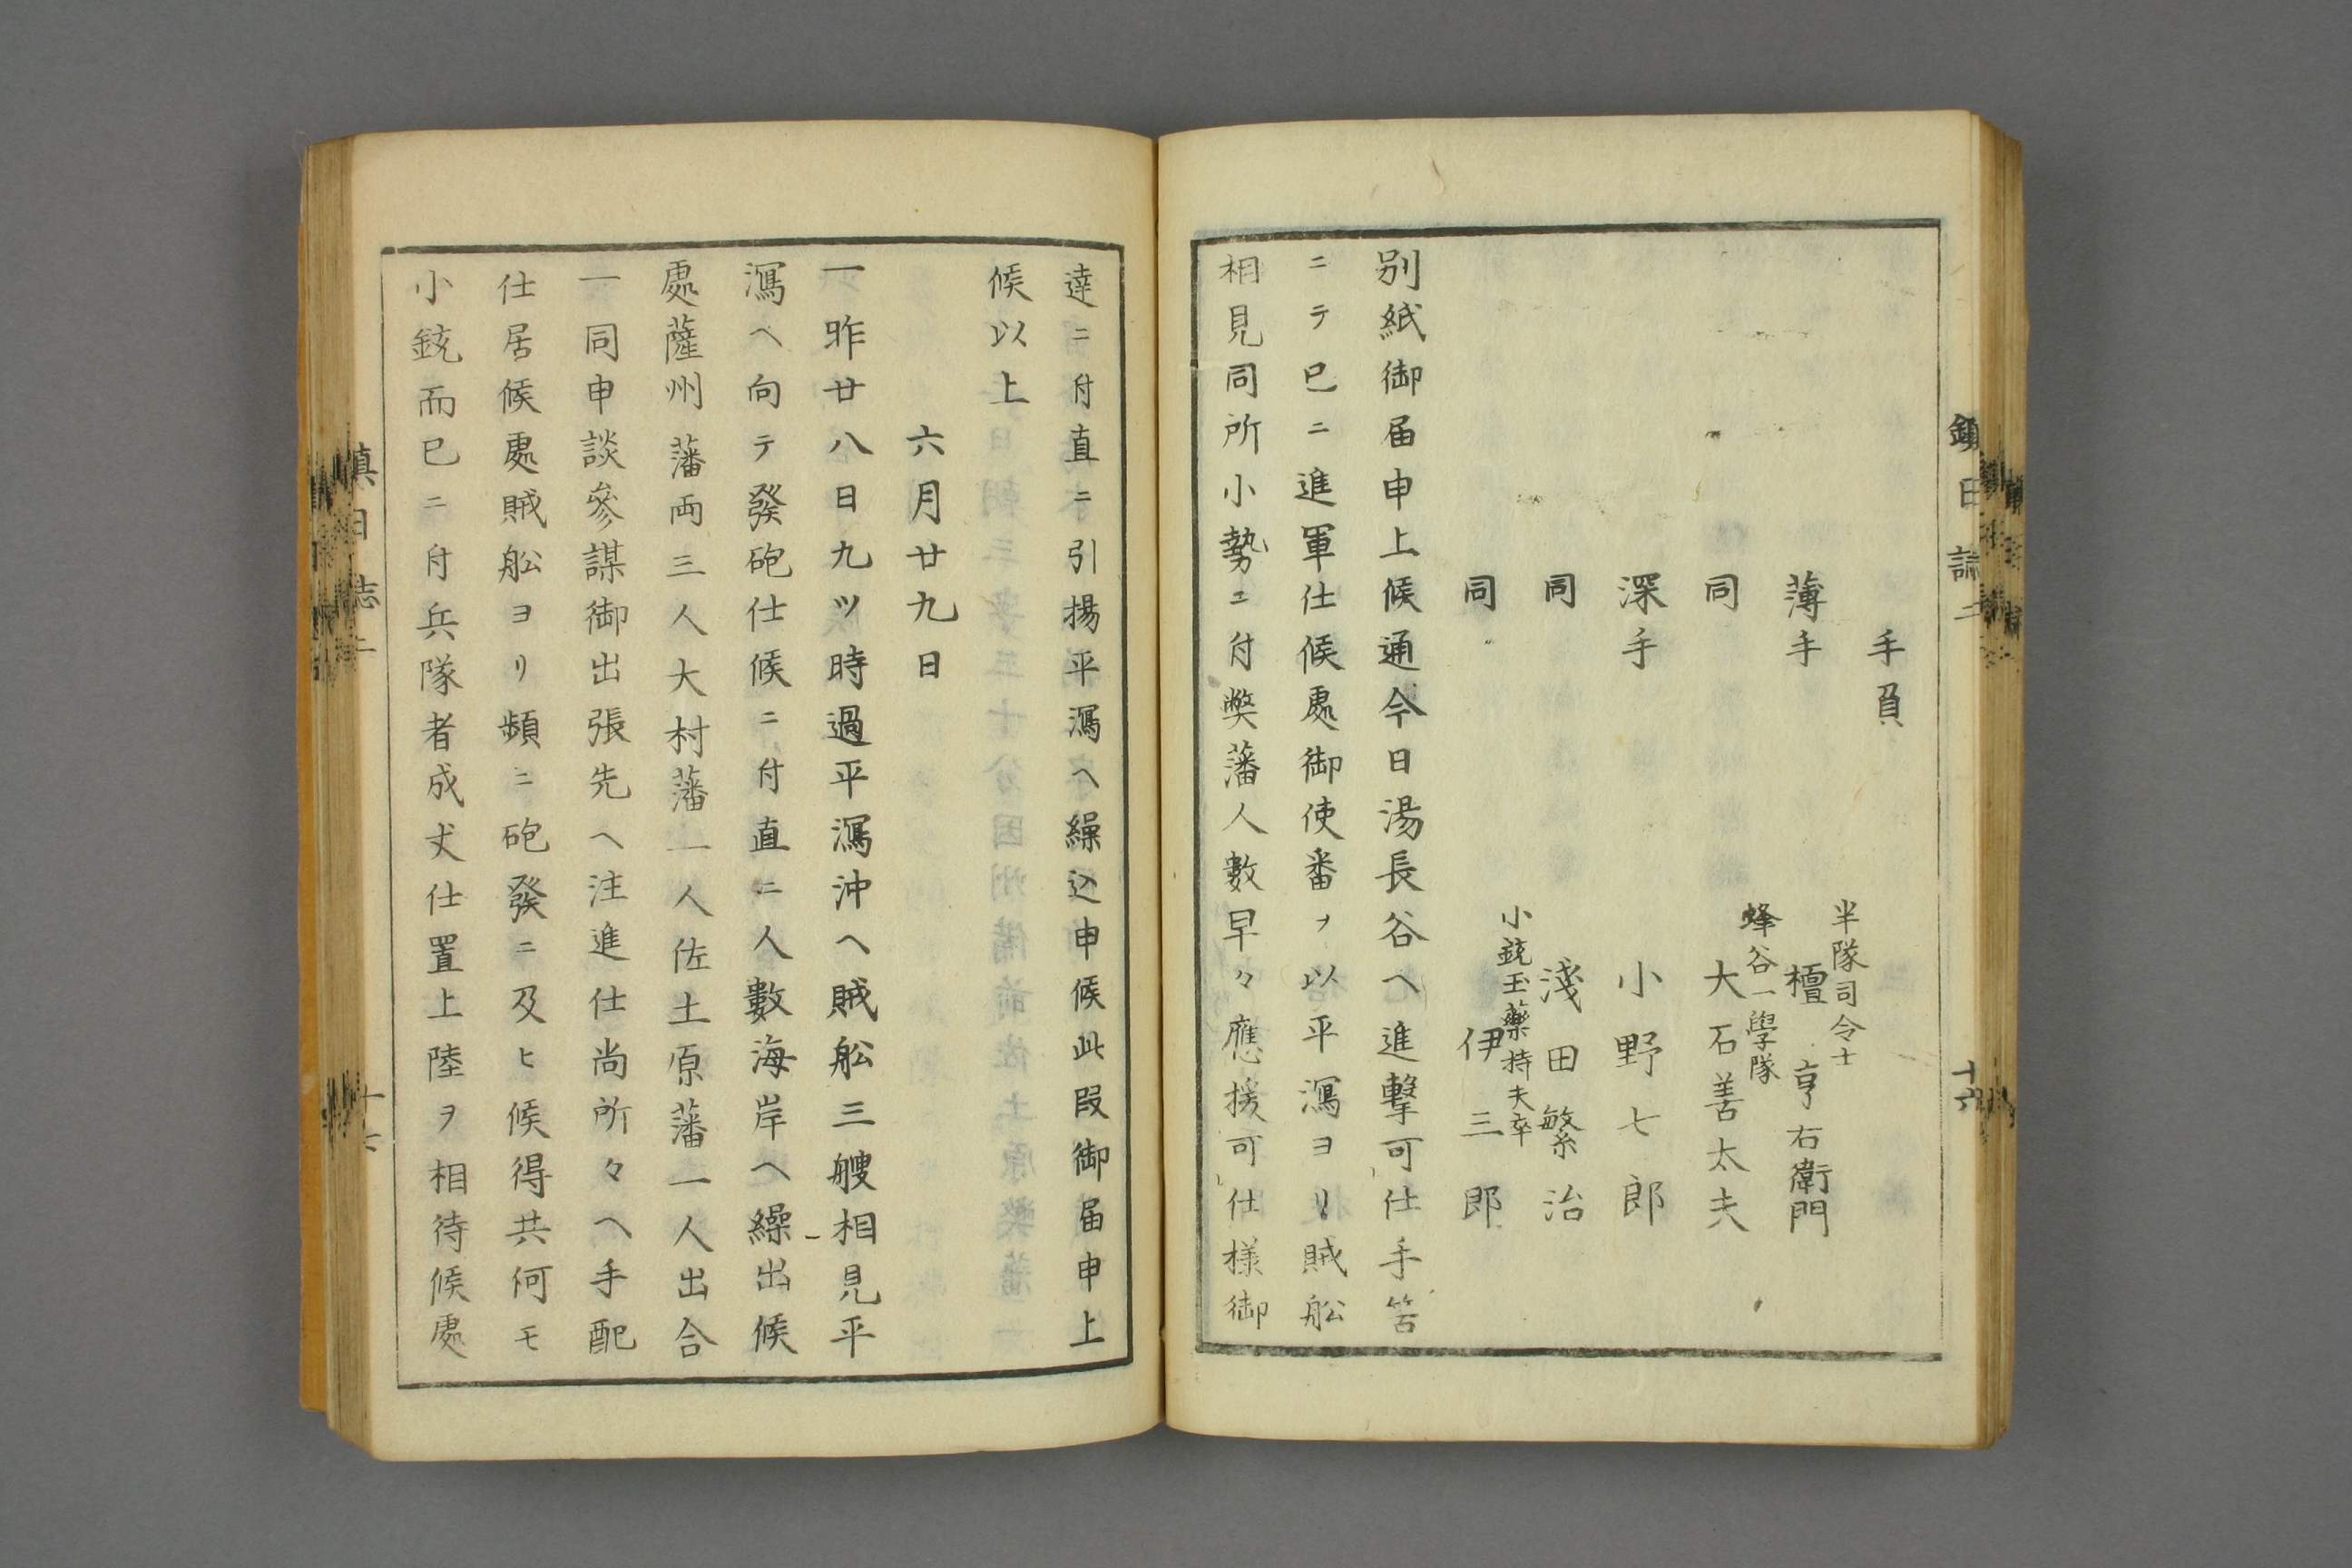 鎮日誌二
十六
手負
半隊司令士
薄手 檀亨右衛門
蜂谷一學隊
同 大石善太夫
深手 小野七郎
同 淺田繁治
小銃玉藥持夫卒
同 伊三郎
別紙御届申上候通今日湯長谷ヘ進擊可仕手筈
ニテ巳ニ進軍仕候處御使番ヲ以平潟ヨリ賊舩
相見同所小勢ニ付弊藩人數早々應援可仕様御
達ニ付直ニ引揚平潟ヘ繰込申候此段御届申上
候以上
六月廿九日
一昨廿八日九ツ時過平潟沖ヘ賊舩三艘相見平
潟ヘ向テ發砲仕候ニ付直ニ人數海岸ヘ繰出候
處薩州藩両三人大村藩一人佐土原藩一人出合
一同申談參謀御出張先ヘ注進仕尚所々ヘ手配
仕居候處賊舩ヨリ頻ニ砲發ニ及ヒ候得共何モ
小銃而巳ニ付兵隊者成丈仕置上陸ヲ相待候處
鎮日志二